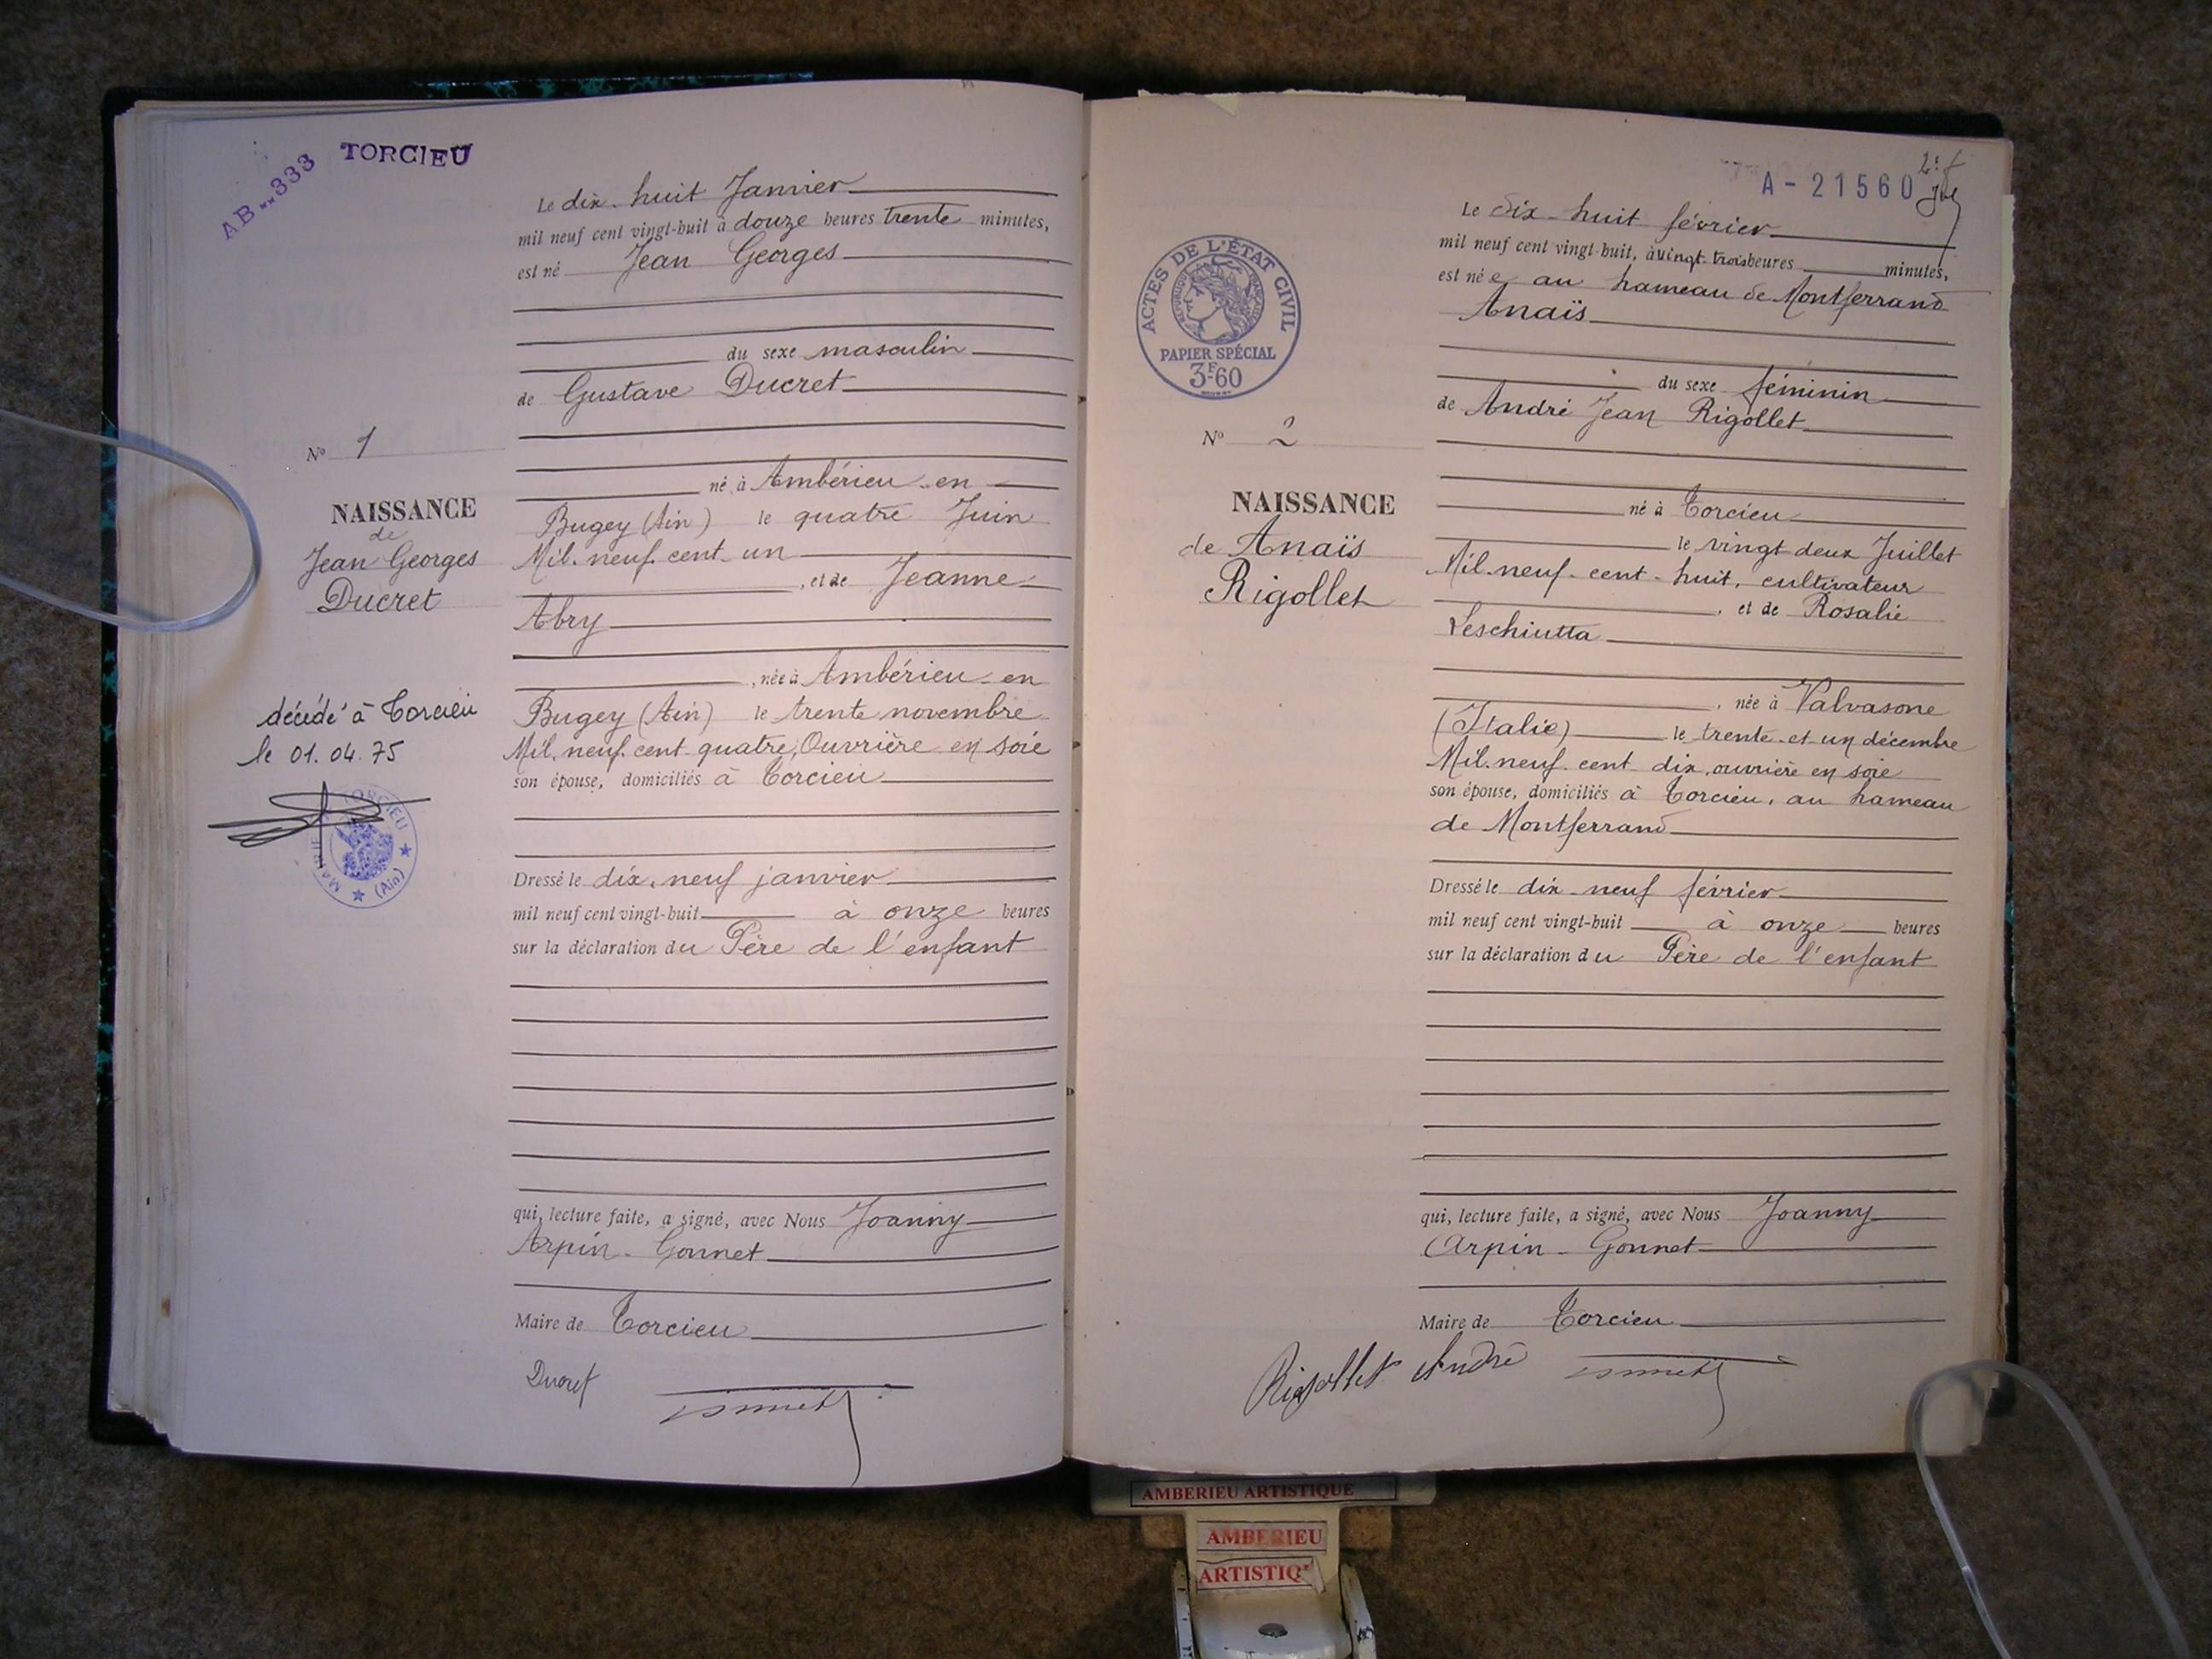 AB..333
TORCIEU
Le dix-huit Janvier
mil neuf cent vingt-huit à douze heures trente minutes,
est né Jean Georges
du sexe masculin
de Gustave Ducret
né à Ambérieu-en
Bugey (Ain) le quatre Juin
Mil-neuf-cent-un
, et de Jeanne
Abry
, née à Ambérieu-en
Bugey (Ain) le trente novembre
Mil-neuf-cent-quatre, Ouvrière en soie
son épouse, domiciliés à Torcieu
Dressé le dix-neuf janvier
mil neuf cent vingt-huit à onze heures
sur la déclaration du Père de l'enfant
qui, lecture faite, a signé, avec Nous Joanny
Arpin-Gonnet
Maire de Torcieu
Ducret
N° 1
NAISSANCE
de
Jean Georges
Ducret
décédé à Torcieu
le 01.04.75
TORCIEU
(Ain)
A-21560
ACTES DE L'ÉTAT CIVIL
PAPIER SPÉCIAL
3F60
N° 2
NAISSANCE
de Anaïs
Rigollet
Le dix-huit février
mil neuf cent vingt-huit, à vingt trois heures minutes,
est née au hameau de Montferrand
Anaïs
du sexe féminin
de André Jean Rigollet
né à Torcieu
le vingt deux Juillet
Mil-neuf-cent-huit, cultivateur
, et de Rosalie
Leschiutta
, née à Valvasone
(Italie) le trente-et-un décembre
Mil-neuf-cent dix, ouvrière en soie
son épouse, domiciliés à Torcieu, au hameau
de Montferrand
Dressé le dix-neuf février
mil neuf cent vingt-huit à onze heures
sur la déclaration du Père de l'enfant
qui, lecture faite, a signé, avec Nous Joanny
Arpin-Gonnet
Maire de Torcieu
Rigollet André
AMBERIEU ARTISTIQUE
AMBERIEU
ARTISTIQ